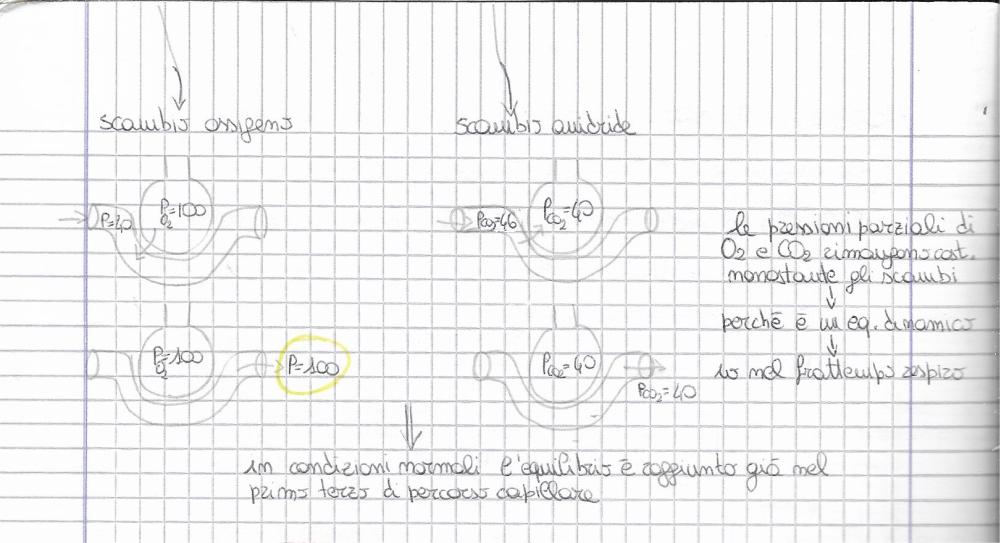 scambio ossigeno
scambio anidride
P=40
PO2=100
PCO2=46
PCO2=40
le pressioni parziali di
O2 e CO2 rimangono cost.
nonostante gli scambi
perché è un eq. dinamico
io nel frattempo respiro
PO2=100
P=100
PCO2=40
PCO2=40
in condizioni normali l'equilibrio è raggiunto già nel
primo terzo di percorso capillare